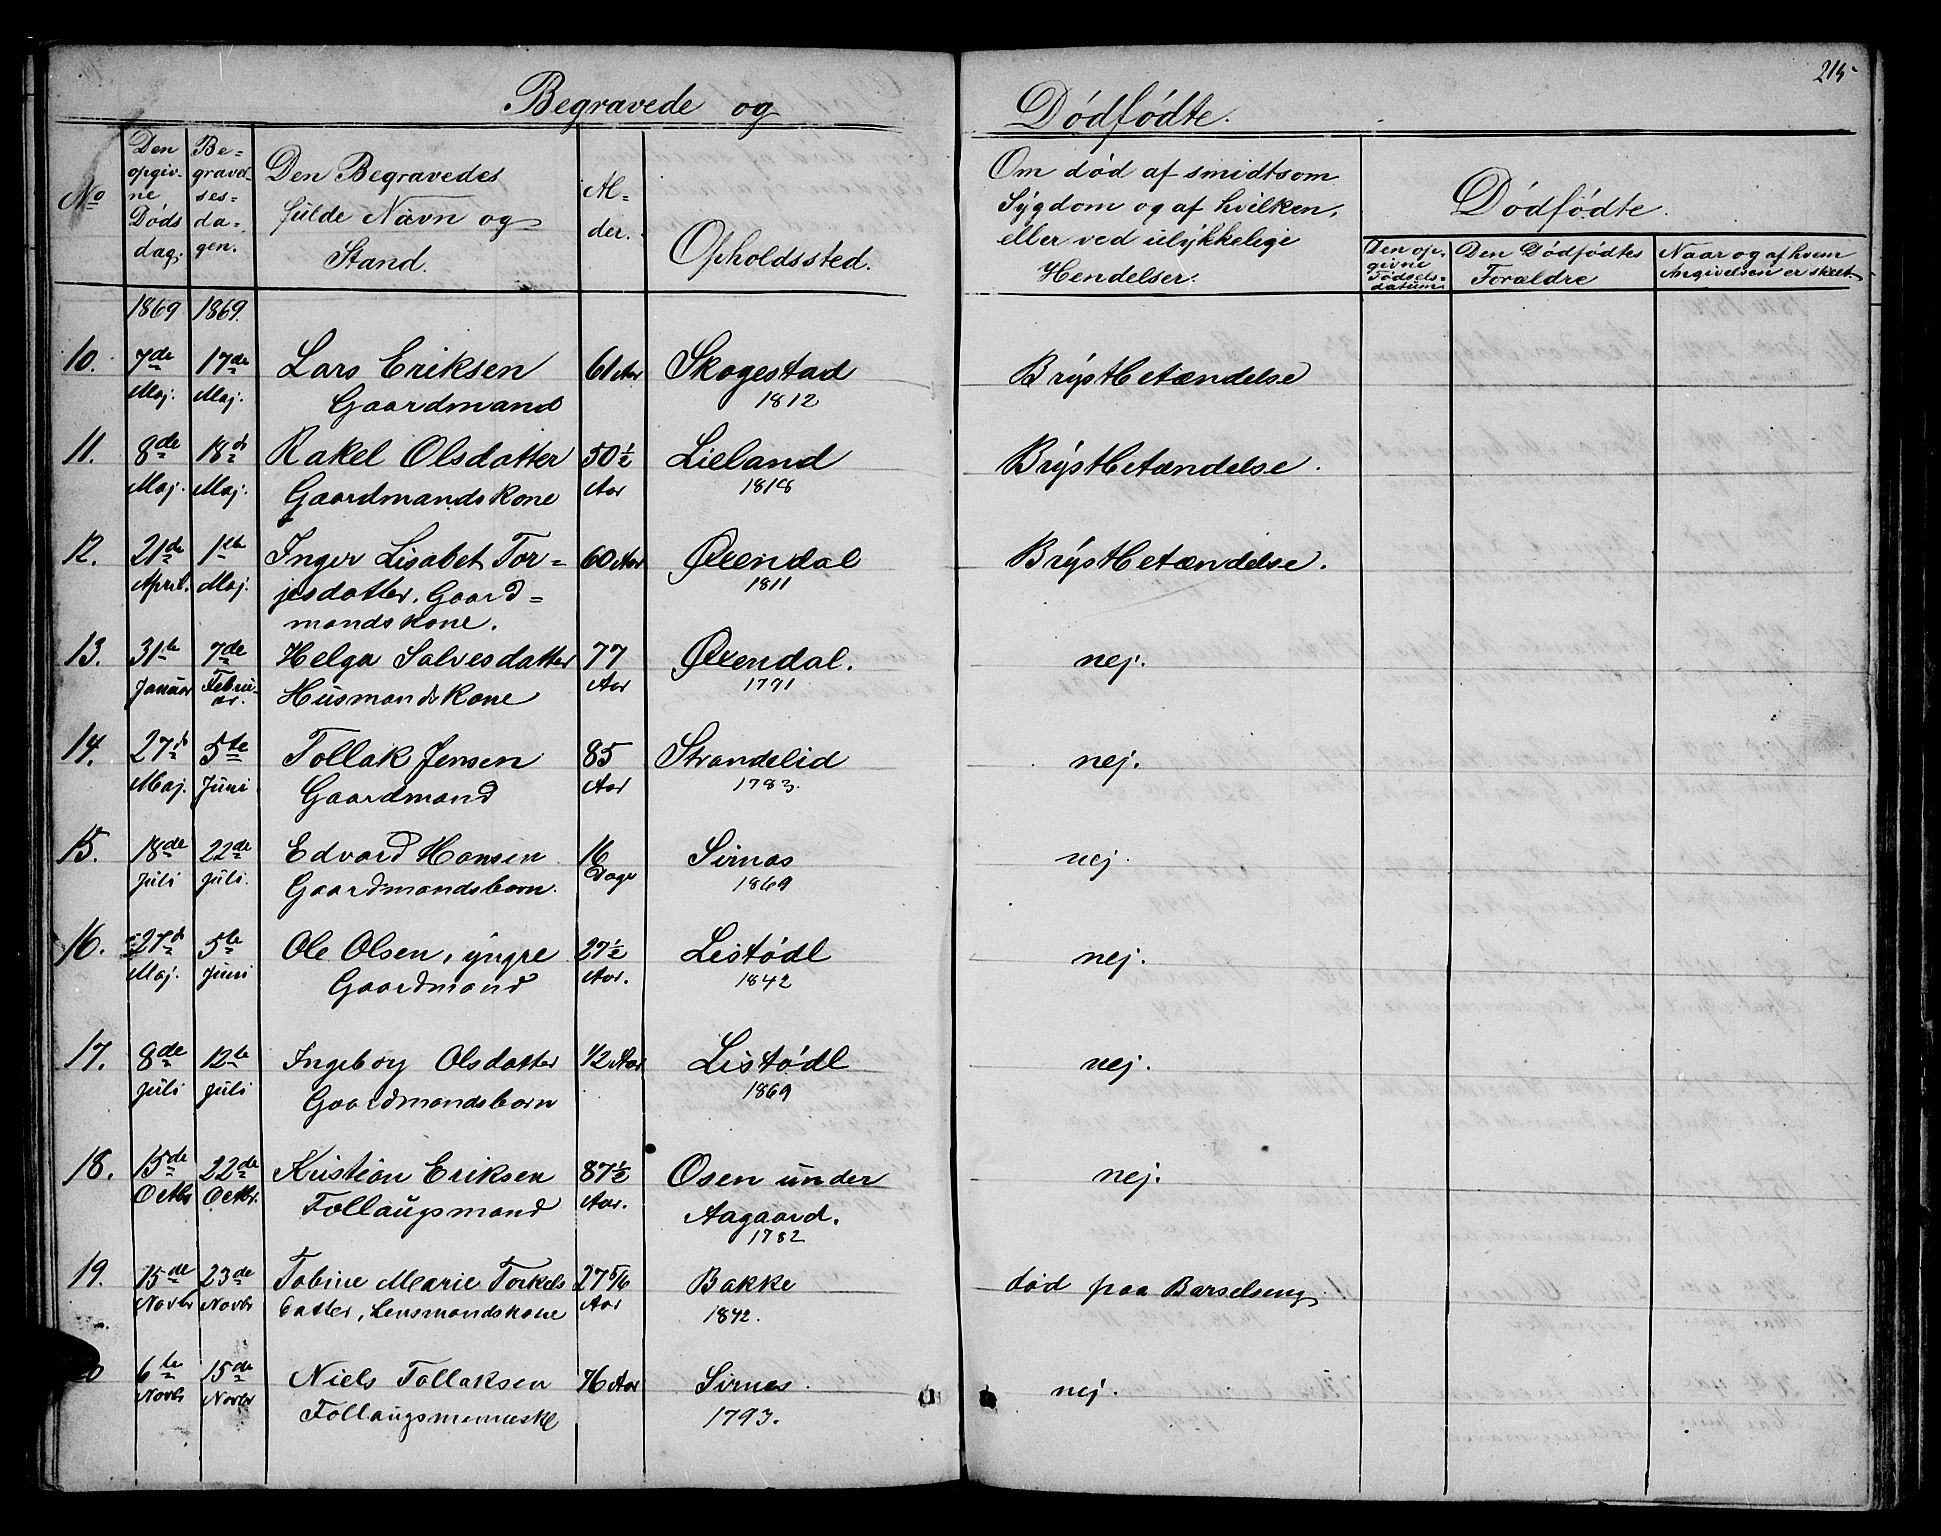 215
Begravede og Dødfødte.
No
Den opgivne Døds dag.
Begravelsesdagen.
Den Begravedes fulde Navn og Stand.
Alder.
Opholdssted.
Om død af smidtsom Sygdom og af hvilken, eller ved ulykkelige Hendelser.
Dødfødte.
Den opgivne Fødselsdatum
Den Dødfødtes Forældre
Naar og af hvem Angivelsen er skeet
1869 1869.
10. 7de 17de Lars Eriksen 61 Aar Skogestad Brystbetændelse
Maj. Maj. Gaardmand 1812
11. 8de 18d Rakel Olsdatter 50½ Lieland Brystbetændelse.
Maj. Maj. Gaardmandskone Aar 1818
12. 21de 1ste Inger Lisabet Tor= 60 Aar Øxendal Brystbetændelse.
April. Maj. jesdatter. Gaard= 1811
mandskone.
13. 31te 7de Helga Salvesdatter 77 Øxendal. nej.
Januar Februar. Husmandskone Aar 1791
14. 27d 5te Tollak Jensen 85 Strandelid nej.
Maj. Juni Gaardmand Aar 1783.
15. 18de 22de Edvard Hansen 16 Sirnas nej.
Juli Juli. Gaardmandsbarn. Dage 1869
16. 27d 5te Ole Olsen, yngre 27½ Listødl nej.
Maj. Juni Gaardmand Aar. 1842
17. 8de 12te Ingeborg Olsdatter 1/2 Aar Listødl nej.
Juli Juli Gaardmandsbarn 1869
18. 15de 22de Kristian Eriksen 87½ Osen under nej.
Octbr Octbr. Follaugsmand Aar. Aagaard.
1782
19. 15de 23de Tobine Marie Torkels 27 5/6 Bakke død paa Barselseng.
Novbr Novbr datter, Lensmandskone Aar 1842.
20 6te 15de Niels Tollaksen 76 Aar Sirnes. nej.
Novbr Novbr Follaugsmenneske 1793.